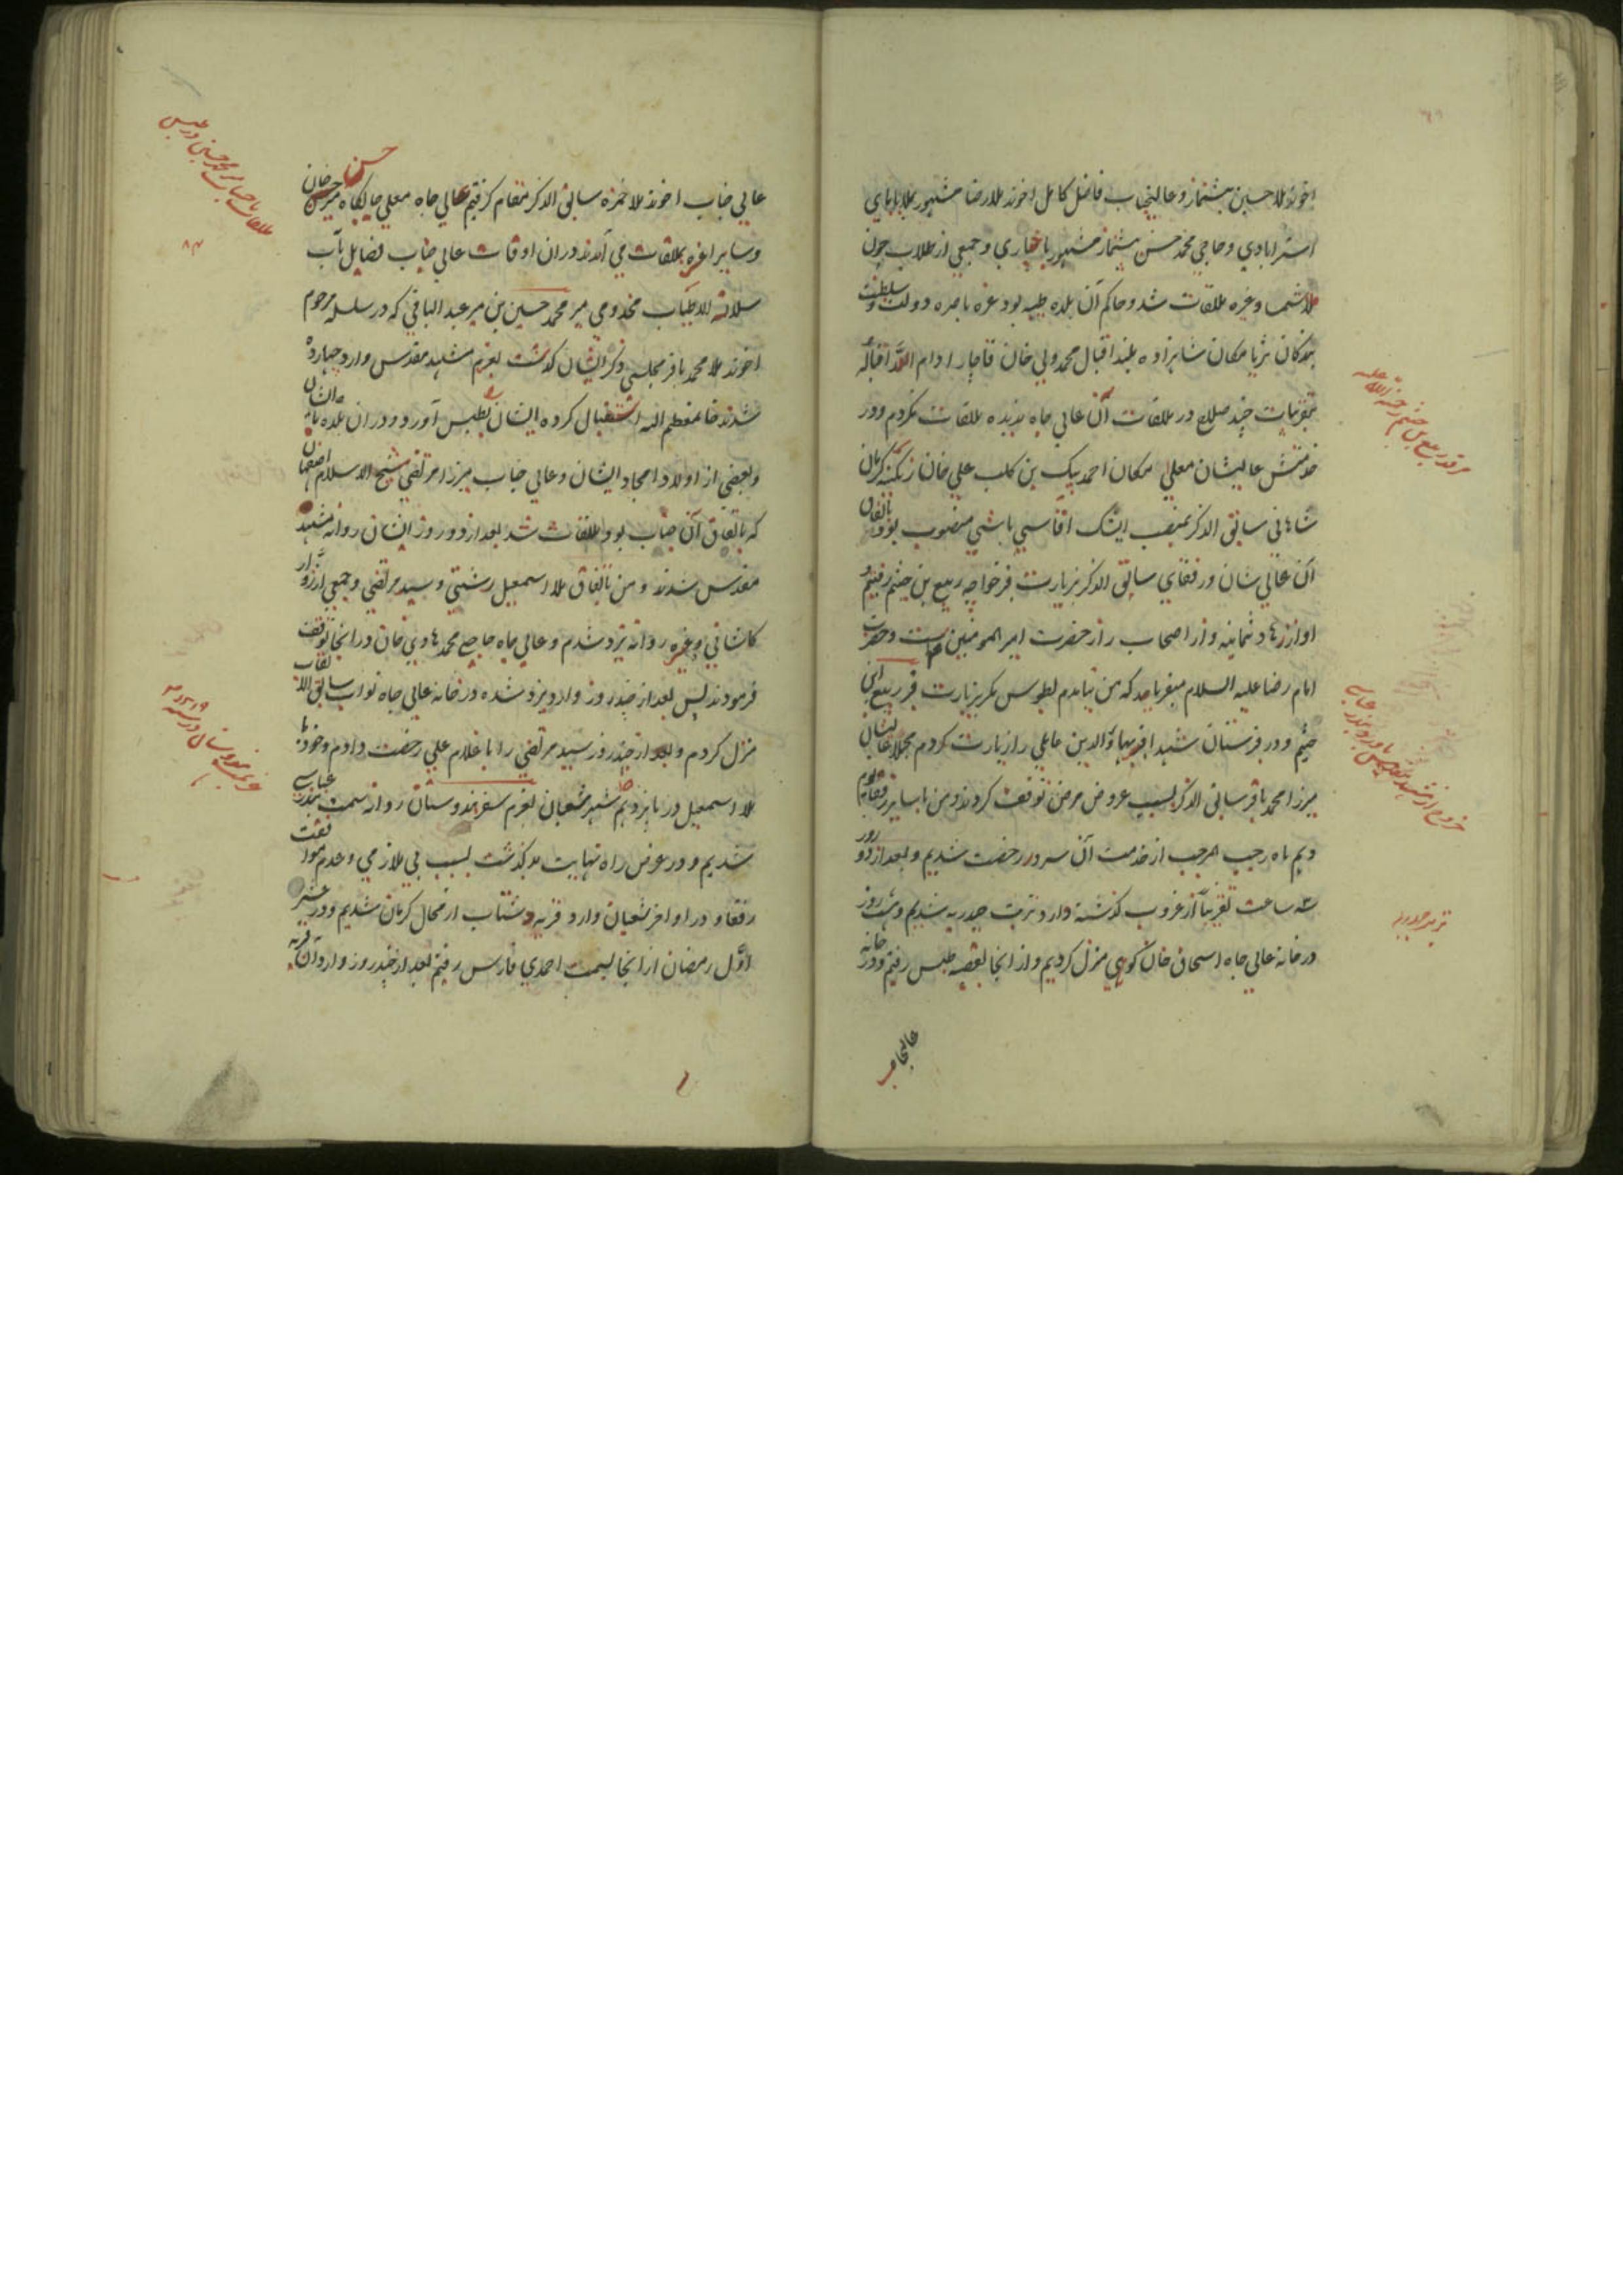 اخوند ملا حسین پیشنماز و عالیجناب فاضل کامل اخوند ملا رضا مشهور بملا بابای
استرابادی و حاجی محمد حسن پیشنماز مشهور باخباری و جمعی از طلاب چون
ملا شمسا وغیره ملاقات شد و حاکم آن بلده طیبه بود غره ناصره دولت و سلطنت
بندکان ثریا مکان شاهزاده بلند اقبال محمد ولی خان قاجار ادام الله اقباله
بتقریبات چند صلاح در ملاقات آن عالی جاه ندیده ملاقات نکردم و در
خدمتش عالیشان معلی مکان احمد بیک بن کلب علی خان زنکنه کرمان
شاهانی سابق الذکر بمنصب ایشک آقاسی باشی منصوب بود و باتفاق
آن عالی شان و رفقای سابق الذکر بزیارت قبر خواجه ربیع بن خیثم رفتیم و
او از زهاد ثمانیه و از اصحاب راز حضرت امیر المومنین است و حضرت
امام رضا علیه السلام میفرماید که من نیامدم بطوس مکر بزیارت قبر ربیع ابن
خیثم و در قبرستان شهدا قبر بهاؤ الدین عاملی را زیارت کردم مجملا عالیشان
میرزا محمد باقر سابق الذکر بسبب عروض مرض توقف کردند و من با سایر رفقا یوم
دهم ماه رجب المرجب از خدمت آن سرور رخصت شدیم و بعد از دو روز
سه ساعت تقریباً از غروب کذشته وارد تربت حیدریه شدیم و شب و روز
در خانه عالی جاه اسحاق خان کوهی منزل کردیم و از انجا بقصبه طبس رفتیم و در خانه
عالیجاه
مرقد ربیع بن خیثم رحمة الله علیه
خروج از مشهد مقدس و ورود بندر عباسی
تربت حیدریه
عالی جناب اخوند ملا حمزه سابق الذکر مقام کرفتیم عالی جاه معلی جایکاه میر حسن خان
و سایر اعزه بملاقات می آمدند در ان اوقات عالی جناب فضایل مآب
سلالة الاطیاب مخدومی میر محمد حسین بن میر عبد الباقی که در سلسله مرحوم
اخوند ملا محمد باقر مجلسی ذکر ایشان کذشت بعزم مشهد مقدس وارد چهارده
شدند خانمعظم الیه استقبال کرده ایشان را بطبس آورد و در ان بلده با ایشان
و بعضی از اولاد امجاد ایشان و عالی جناب میرزا مرتضی شیخ الاسلام اصفهان
که باتفاق آن جناب بود ملاقات شد بعد از دو روز ایشان روانه مشهد
مقدس شدند و من باتفاق ملا اسمعیل رشتی و سید مرتضی و جمعی از زوار
کاشانی وغیره روانه یزد شدم و عالی جاه حاجی محمد هادی خان در انجا توقف
فرمودند پس بعد از چند روز وارد یزد شده در خانه عالی جاه نواب سابق الالقاب
منزل کردم و بعد از چند روز سید مرتضی را با غلام علی رخصت دادم و خود با
ملا اسمعیل در پانزدهم شهر شعبان بعزم سفر هندوستان روانه سمت بندر عباسی
شدیم و در عرض راه نهایت بد کذشت بسبب بی ملازمی و عدم موافقت
رفقا و در اواخر شعبان وارد قریه دشتاب از محال کرمان شدیم و در عشر
اول رمضان از انجا بسمت احمدی فارس رفتیم بعد از چند روز وارد ان قریه
حسن
ملاقات با جناب میر محمد حسین در طبس
عزیمت هندوستان در سنه ۱۲۱۹